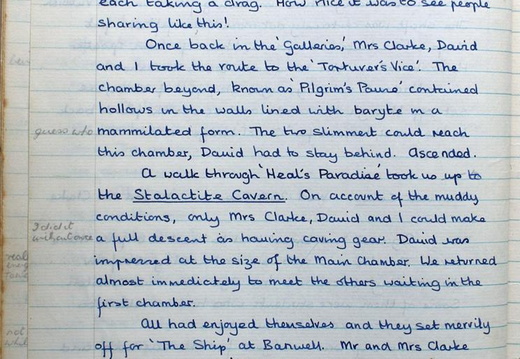 each taking a drag. How nice it was to see people
sharing like this!
Once back in the 'Galleries', Mrs Clarke, David
and I took the route to the 'Torturer's Vice'. The
chamber beyond, known as 'Pilgrim's Pause' contained
hollows in the walls lined with baryte in a
guess who
mammilated form. The two slimmest could reach
this chamber, David had to stay behind. Ascended.
A walk through 'Heal's Paradise' took us up to
the Stalactite Cavern. On account of the muddy
conditions, only Mrs Clarke, David and I could make
I did it
without once
a full descent as having caving gear. David was
impressed at the size of the Main Chamber. We returned
almost immediately to meet the others waiting in the
first chamber.
All had enjoyed themselves and they set merrily
off for 'The Ship' at Banwell. Mr and Mrs Clarke